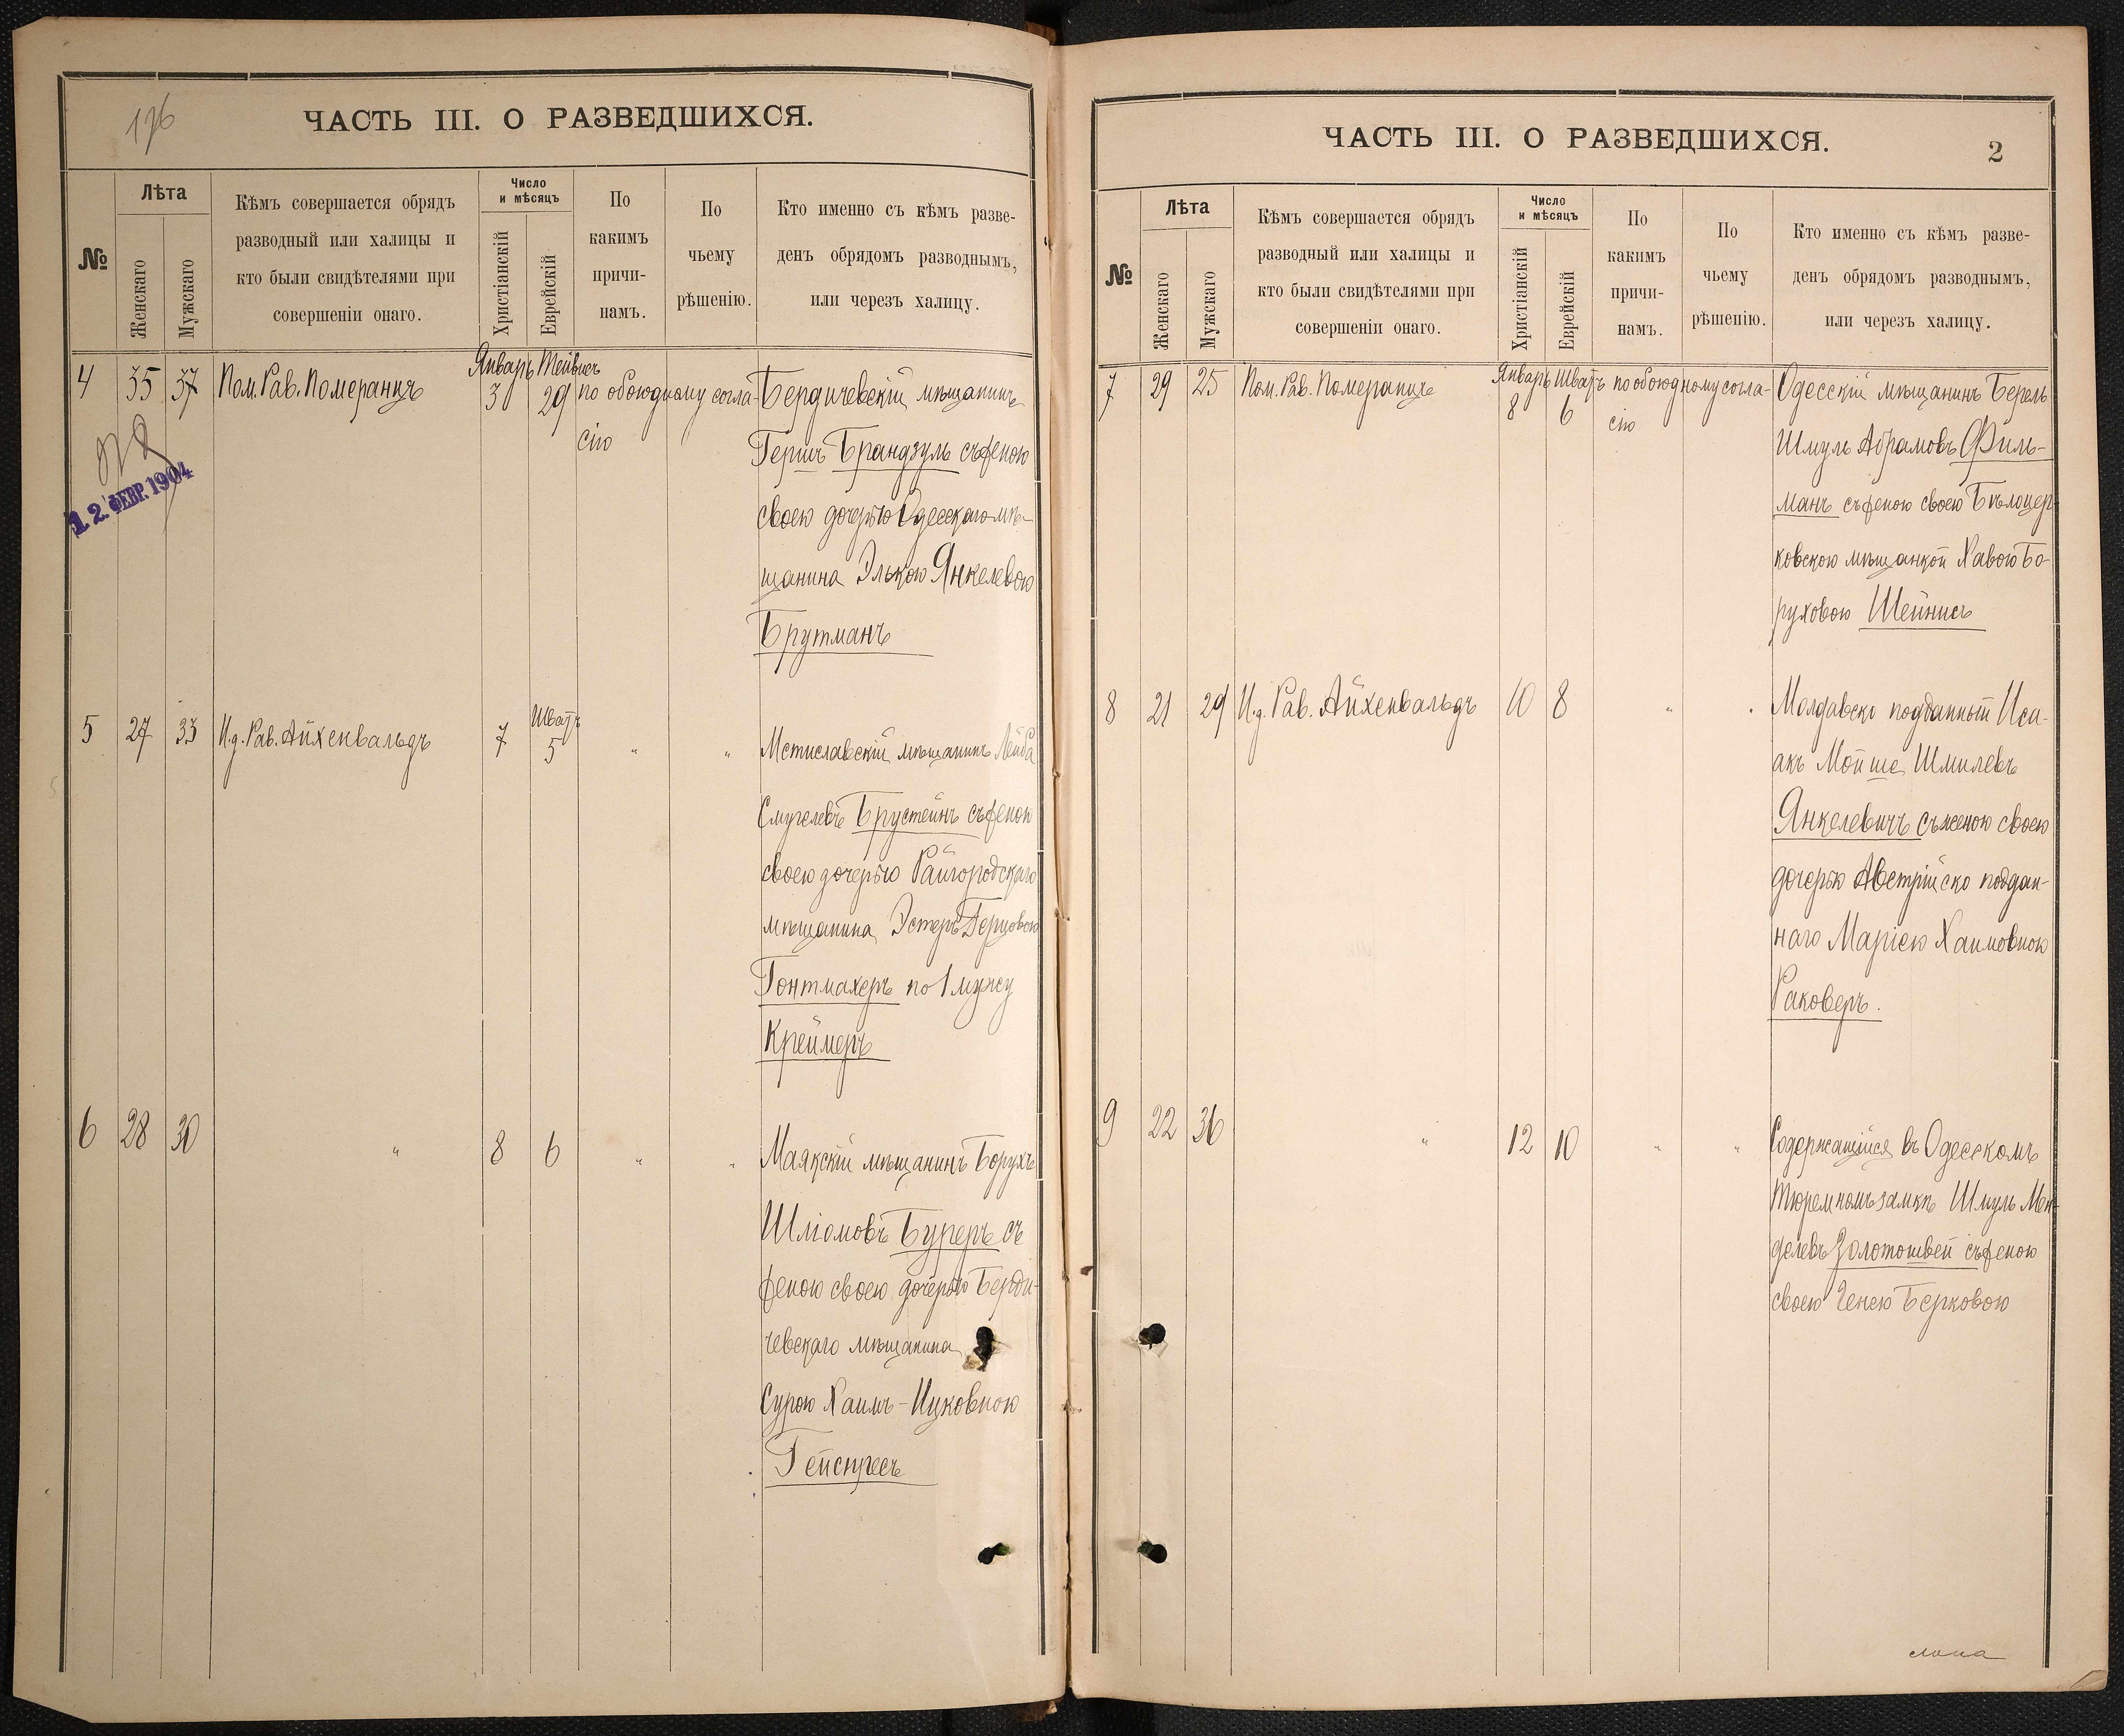 176
ЧАСТЬ III. О РАЗВЕДШИХСЯ.
№
Лѣта
Женскаго
Мужскаго
Кѣмъ совершается обрядъ
разводный или халицы и
кто были свидѣтелями при
совершеніи онаго.
Число
и мѣсяцъ
Христіанскій
Еврейскій
По
какимъ
причи-
намъ.
По
чьему
рѣшенію.
Кто именно съ кѣмъ разве-
денъ обрядомъ разводнымъ,
или черезъ халицу.
Январь Тейвесъ
4 35 37 Пом. Рав. Померанцъ 3 29 по обоюдному согла- Бердичевскій мѣщанинъ
сію
Гершъ Брандзуль съ женою
12. ФЕВР. 1904
своею дочерью Одесскаго мѣ-
щанина Элькою Янкелевою
Брутманъ
Шватъ
5 27 33 И.д. Рав. Айхенвальдъ 7 5 " " Мстиславскій мѣщанинъ Лейба
Смуелевъ Брустейнъ съ женою
своею дочерью Райгородскаго
мѣщанина Эстеръ Герцовою
Гонтмахеръ по 1 мужу
Креймеръ
6 28 30 " 8 6 " " Маякскій мѣщанинъ Борухъ
Шліомовъ Буреръ съ
женою своею дочерью Берди-
чевскаго мѣщанина
Сурою Хаимъ-Ицковною
ЧАСТЬ III. О РАЗВЕДШИХСЯ.
2
№
Лѣта
Женскаго
Мужскаго
Кѣмъ совершается обрядъ
разводный или халицы и
кто были свидѣтелями при
совершеніи онаго.
Число
и мѣсяцъ
Христіанскій
Еврейскій
По
какимъ
причи-
намъ.
По
чьему
рѣшенію.
Кто именно съ кѣмъ разве-
денъ обрядомъ разводнымъ,
или черезъ халицу.
Январь Шватъ
7 29 25 Пом. Рав. Померанцъ 8 6 по обоюдному согла- Одесскій мѣщанинъ Берель
сію
Шмуль Абрамовъ Филь-
манъ съ женою своею Бѣлоцер-
ковскою мѣщанкой Хавою Бо-
руховою Шейнисъ
8 21 29 И.д. Рав. Айхенвальдъ 10 8 " " Молдавско подданный Иса-
акъ Мойше Шмилевъ
Янкелевичъ съ женою своею
дочерью Австрійско поддан-
наго Маріею Хаимовною
Раковеръ.
9 22 36 " 12 10 " " Содержащійся въ Одесскомъ
Тюремномъ замкѣ Шмуль Мен-
делевъ Золотошвей съ женою
своею Генею Берковою